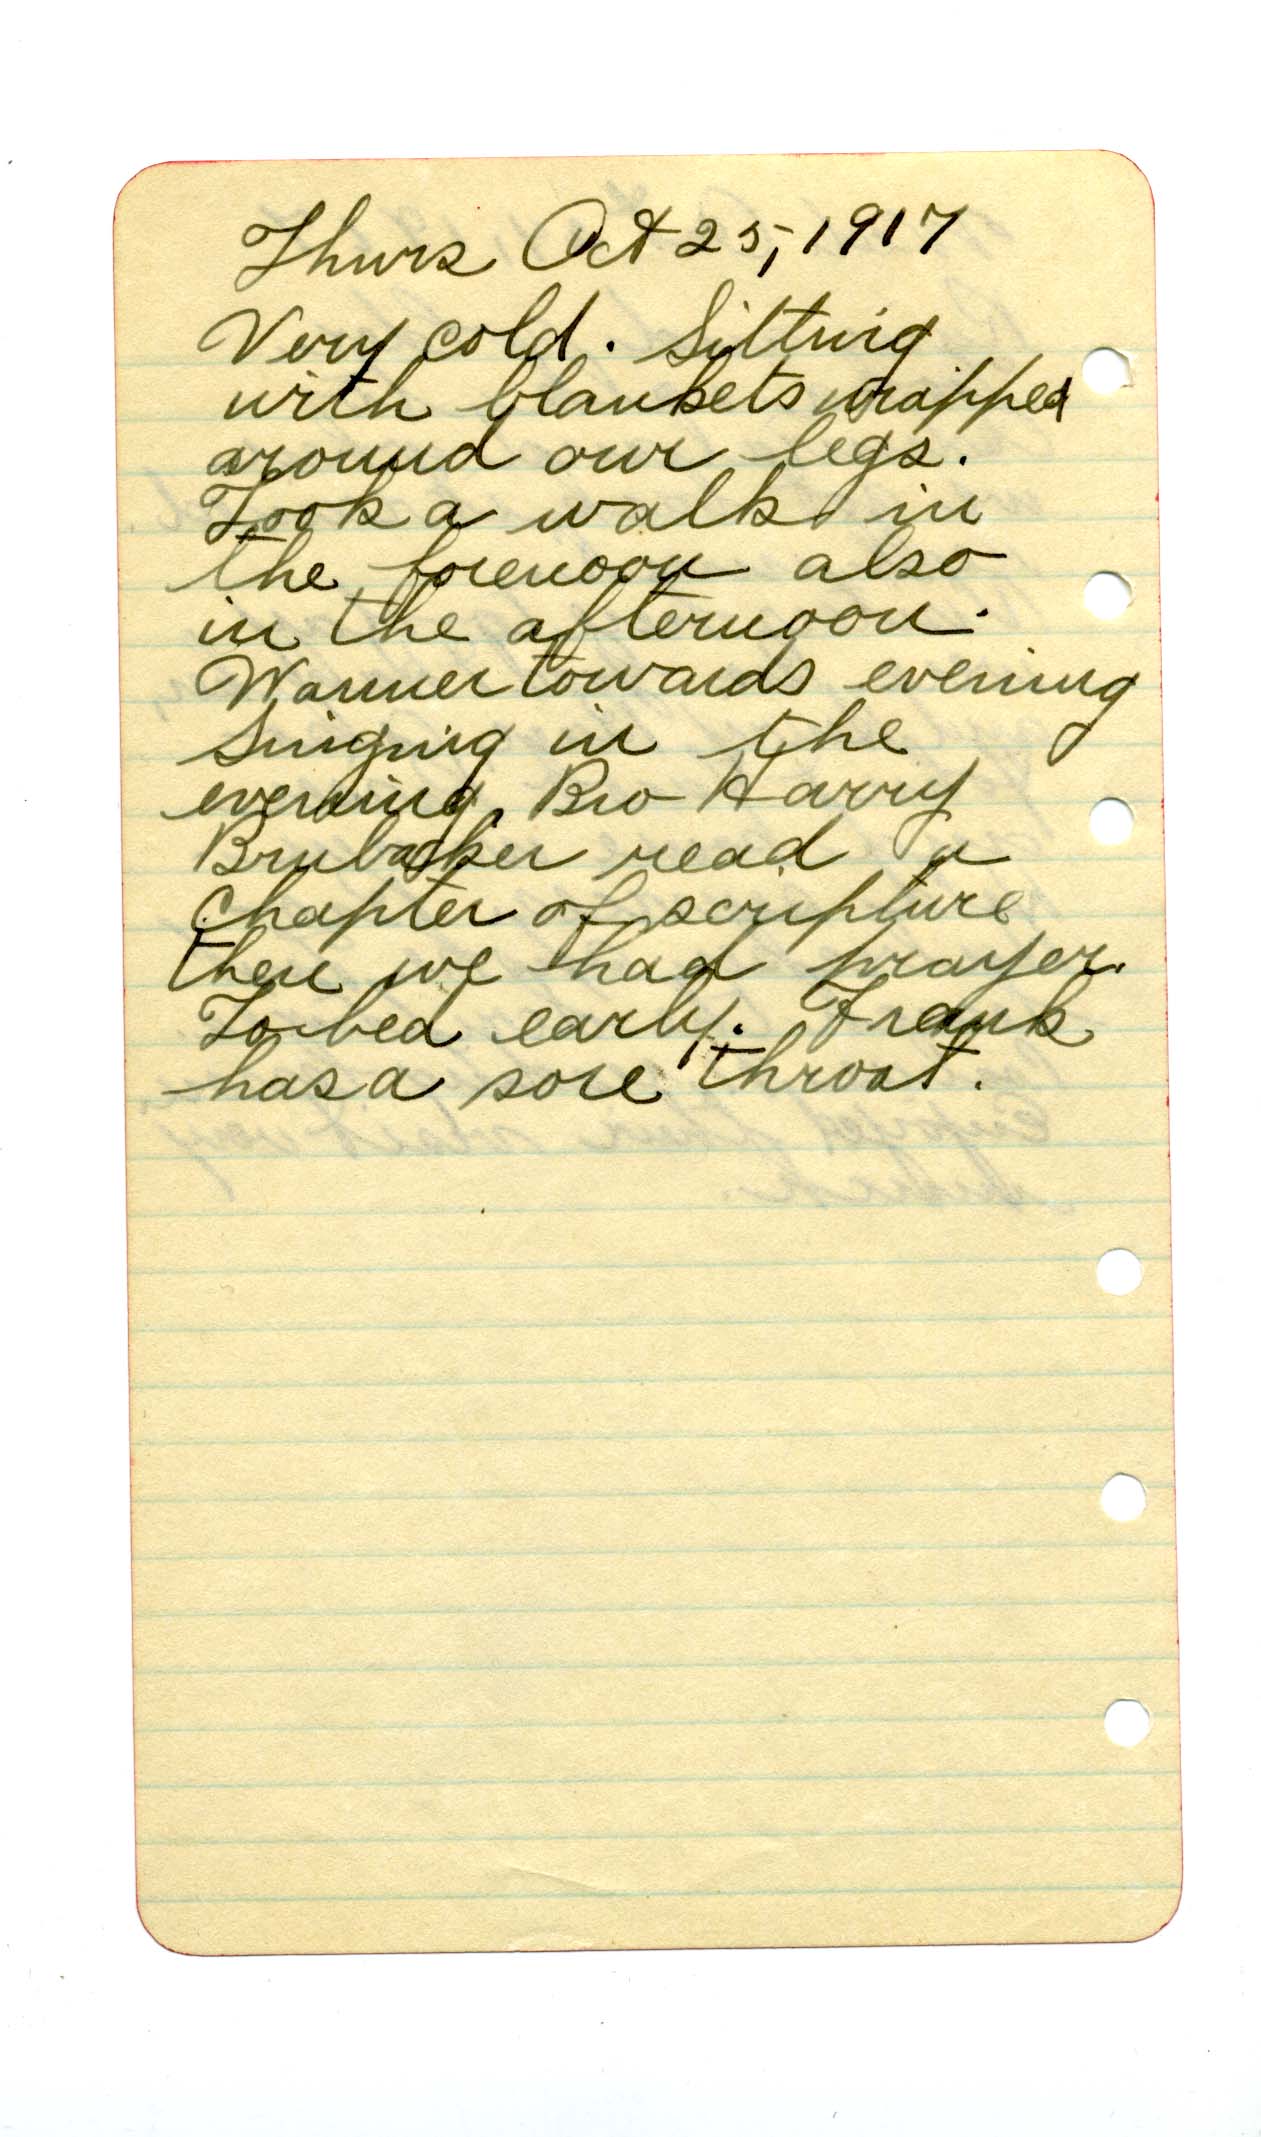 Thurs Oct 25, 1917
Very cold. Sitting
with blankets wrapped
around our legs.
Took a walk in
the forenoon also
in the afternoon.
Warmer towards evening
Singing in the
evening. Bro Harry
Brubacker read a
chapter of scripture
then we had prayer.
To bed early. Frank
has a sore throat.